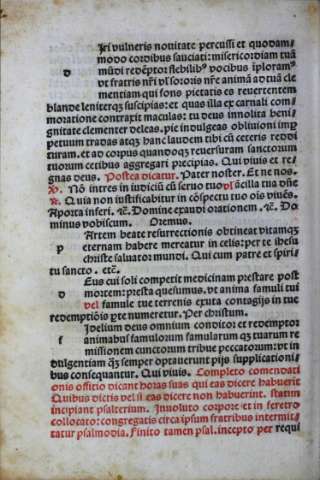 Iri vulneris nouitate percussi et quodam/
modo cordibus sauciati: misericordiam tuā
d mūdi redēptor flebilibꝰ vocibus īploramꝰ
vt fratris nr̄i vl̄ sororis nr̄e animā ad tuā cle
mentiam qui fons pietatis es reuertentem
blande leniterqꝫ suscipias: et quas illa ex carnali com
moratione contraxit maculas: tu deus innolita beni
gnitate clementer deleas. pie indulgeas obliuioni imp
petuum tradas atqꝫ hanc laudem tibi cū ceteris reddi
turam. et ad corpus quandoqꝫ reuersuram sanctorum
tuorum cetibus aggregari precipias. Qui viuis et re/
gnas deus. Postea dicatur. Pater noster. Et ne nos.
℣. Nō intres in iudiciū cū seruo tuo vl̄ ācilla tua dn̄e
℟. Quia non iustificabitur in cōspectu tuo ois viuēs.
A porta inferi. ℟. Domine exaudi orationem. ℟. Do
minus vobiscum. Oremus.
Artem beate resurrectionis obtineat vitamqꝫ
p eternam habere mereatur in celis: per te ihesu
christe saluator mundi. Qui cum patre et spiri/
tu sancto. etc̄.
Eus cui soli competit medicinam prestare post
d mortem: presta quesumus. vt anima famuli tui
vel famule tue terrenis exuta contagijs in tue
redemptiōis pte numeretur. Per christum.
Idelium deus omnium conditor et redemptor
f animabus famulorum famularum qꝫ tuarum re
missionem cunctorum tribue peccatorum: vt in
dulgentiam qꝫ semper optauerunt pijs supplicationi/
bus consequantur. Qui viuis. Completo comendati
onis offitio dicant horas suas qui eas dicere habuerit
Quibus dictis vel si eas dicere non habuerint. statim
incipiant psalterium. Inuoluto corpore et in feretro
collocato: congregatis circa ipsum fratribus intermit/
tatur psalmodia. Finito tamen psal. incepto per requi